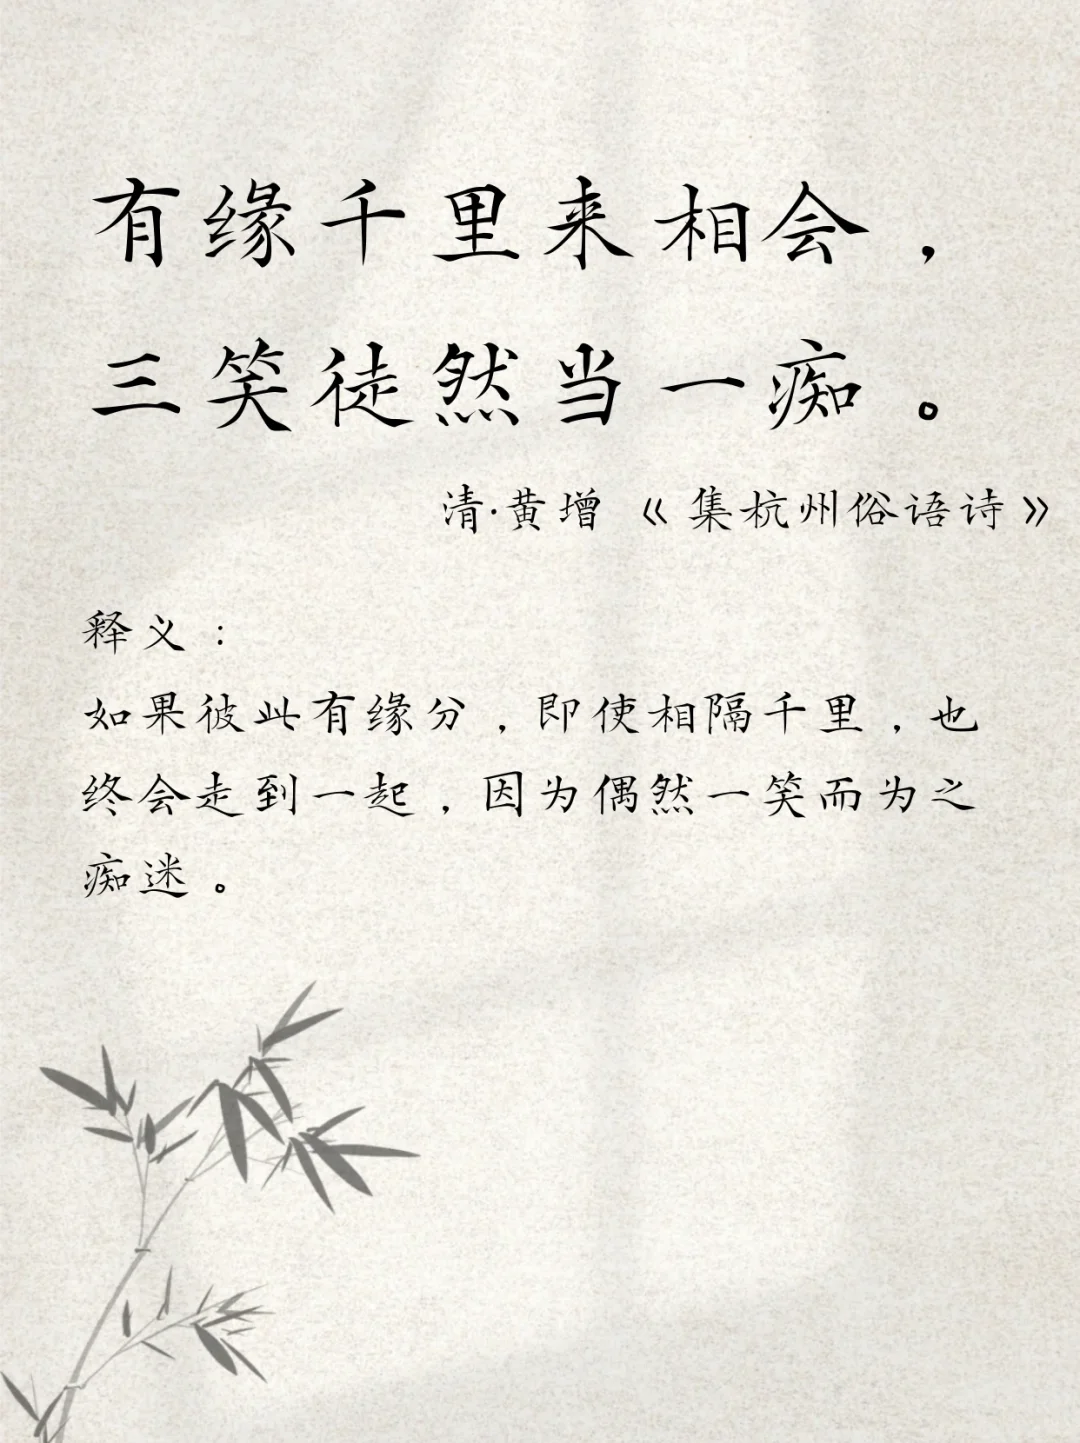 有缘千里来相会，
三笑徒然当一痴。
清·黄增《集杭州俗语诗》
释义：
如果彼此有缘分，即使相隔千里，也
终会走到一起，因为偶然一笑而为之
痴迷。